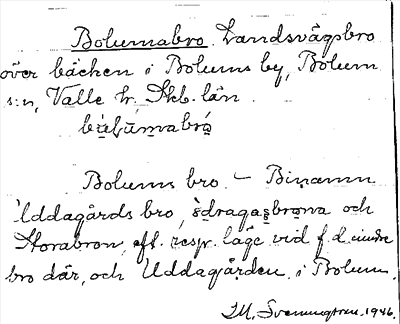 Bolumabro. Landsvägsbro
över bäcken i Bolums by, Bolum
s:n, Valle hr, Skb. län.
bu̇lu̇mabrȯ
Bolums bro. – Binamn
Uddagårds bro, och
Storabron, eft. resp. läge vid f. d. mindre
bro där, och Uddagården i Bolum.
M. 1946.